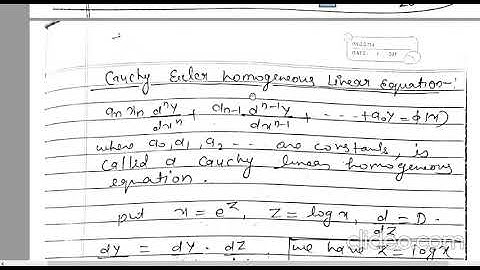 Cauchy Euler homogeneous Linear Equation-:
an xn dⁿy/dxⁿ + an-1 dⁿ⁻¹y/dxn-1 + ---- + a0y = φ(x)
where a0, a1, a2 -- are constants, is
called a cauchy linear homogeneous
equation.
put x = e^z, z = log x, d/dz = D.
dy = dy . dz we have z = log x
clideo.com